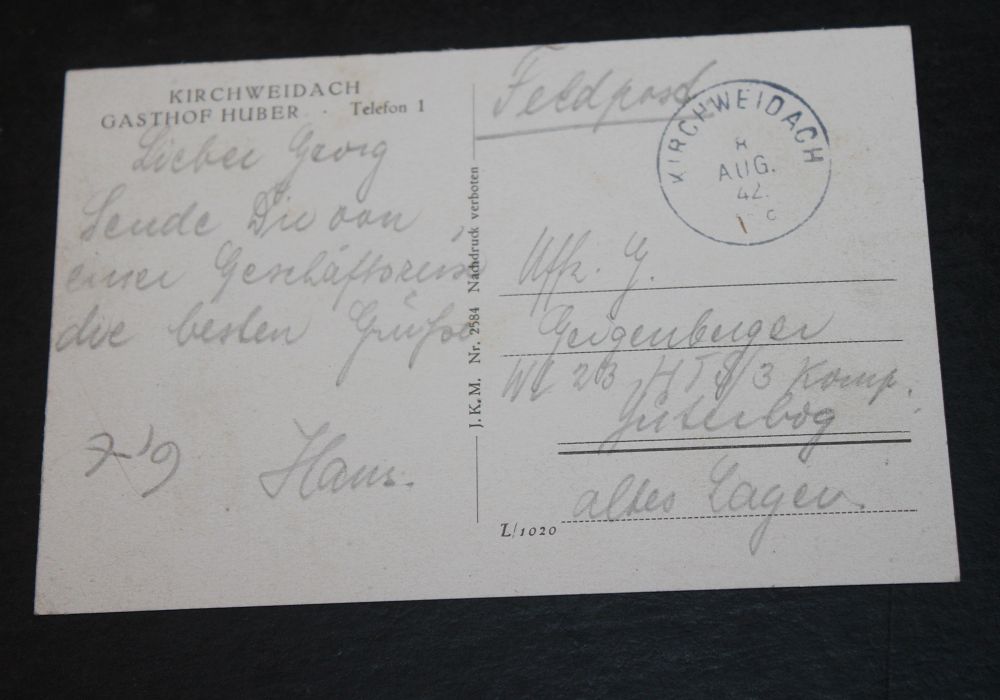 KIRCHWEIDACH
GASTHOF HUBER · Telefon 1
Lieber Georg
Sende Dir von
einer Geschäftsreise
die besten Grüße
Hans.
J. K. M. Nr. 2584 Nachdruck verboten
Feldpost
KIRCHWEIDACH
8
AUG.
42
c
Uffz. G.
Geigenberger
3 Komp.
Jüterbog
altes Lager
L/1020